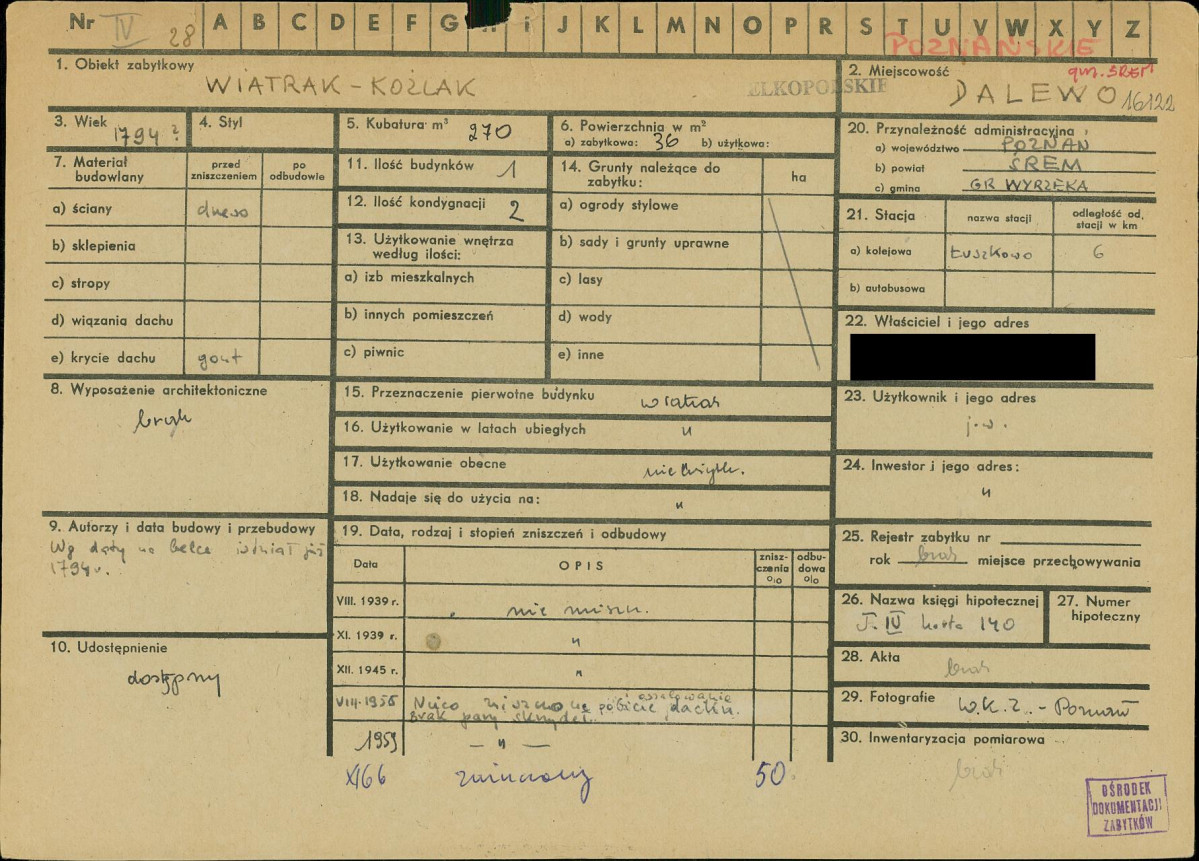 Nr IV 28 A B C D E F G i J K L M N O P R S T U V W X Y Z
POZNAŃSKIE
gm. ŚREM
1. Obiekt zabytkowy
WIATRAK - KOŹLAK
ELKOPOLSKIE
2. Miejscowość
DALEWO 16122
3. Wiek
1794?
4. Styl
5. Kubatura m³ 270
6. Powierzchnia w m²
a) zabytkowa: 36 b) użytkowa:
7. Materiał budowlany
przed zniszczeniem
po odbudowie
a) ściany drewo
b) sklepienia
c) stropy
d) wiązania dachu
e) krycie dachu gont
8. Wyposażenie architektoniczne
brak
9. Autorzy i data budowy i przebudowy
Wg daty na belce istniał już
1794 r.
10. Udostępnienie
dostępny
11. Ilość budynków 1
12. Ilość kondygnacji 2
13. Użytkowanie wnętrza
według ilości:
a) izb mieszkalnych
b) innych pomieszczeń
c) piwnic
14. Grunty należące do
zabytku:
ha
a) ogrody stylowe
b) sady i grunty uprawne
c) lasy
d) wody
e) inne
15. Przeznaczenie pierwotne budynku wiatrak
16. Użytkowanie w latach ubiegłych "
17. Użytkowanie obecne nieużytk.
18. Nadaje się do użycia na: "
19. Data, rodzaj i stopień zniszczeń i odbudowy
Data
OPIS
znisz-
czenia
o/o
odbu-
dowa
o/o
VIII. 1939 r. nie niszcz.
XI. 1939 r. "
XII. 1945 r. "
i oszalowanie
VIII-1956 Nieco zniszczone pobicie dachu.
brak pary skrzydeł.
1959 — " —
XI 66 zniszczony 50.
20. Przynależność administracyjna
a) województwo POZNAŃ
b) powiat ŚREM
c) gmina GR WYRZEKA
21. Stacja
nazwa stacji
odległość od.
stacji w km
a) kolejowa Łuszkowo 6
b) autobusowa
22. Właściciel i jego adres
23. Użytkownik i jego adres
j.w.
24. Inwestor i jego adres:
"
25. Rejestr zabytku nr
rok brak miejsce przechowywania
26. Nazwa księgi hipotecznej
T. IV karta 140
27. Numer
hipoteczny
28. Akta
brak
29. Fotografie W.K.Z. - Poznań
30. Inwentaryzacja pomiarowa
brak
OŚRODEK
DOKUMENTACJI
ZABYTKÓW